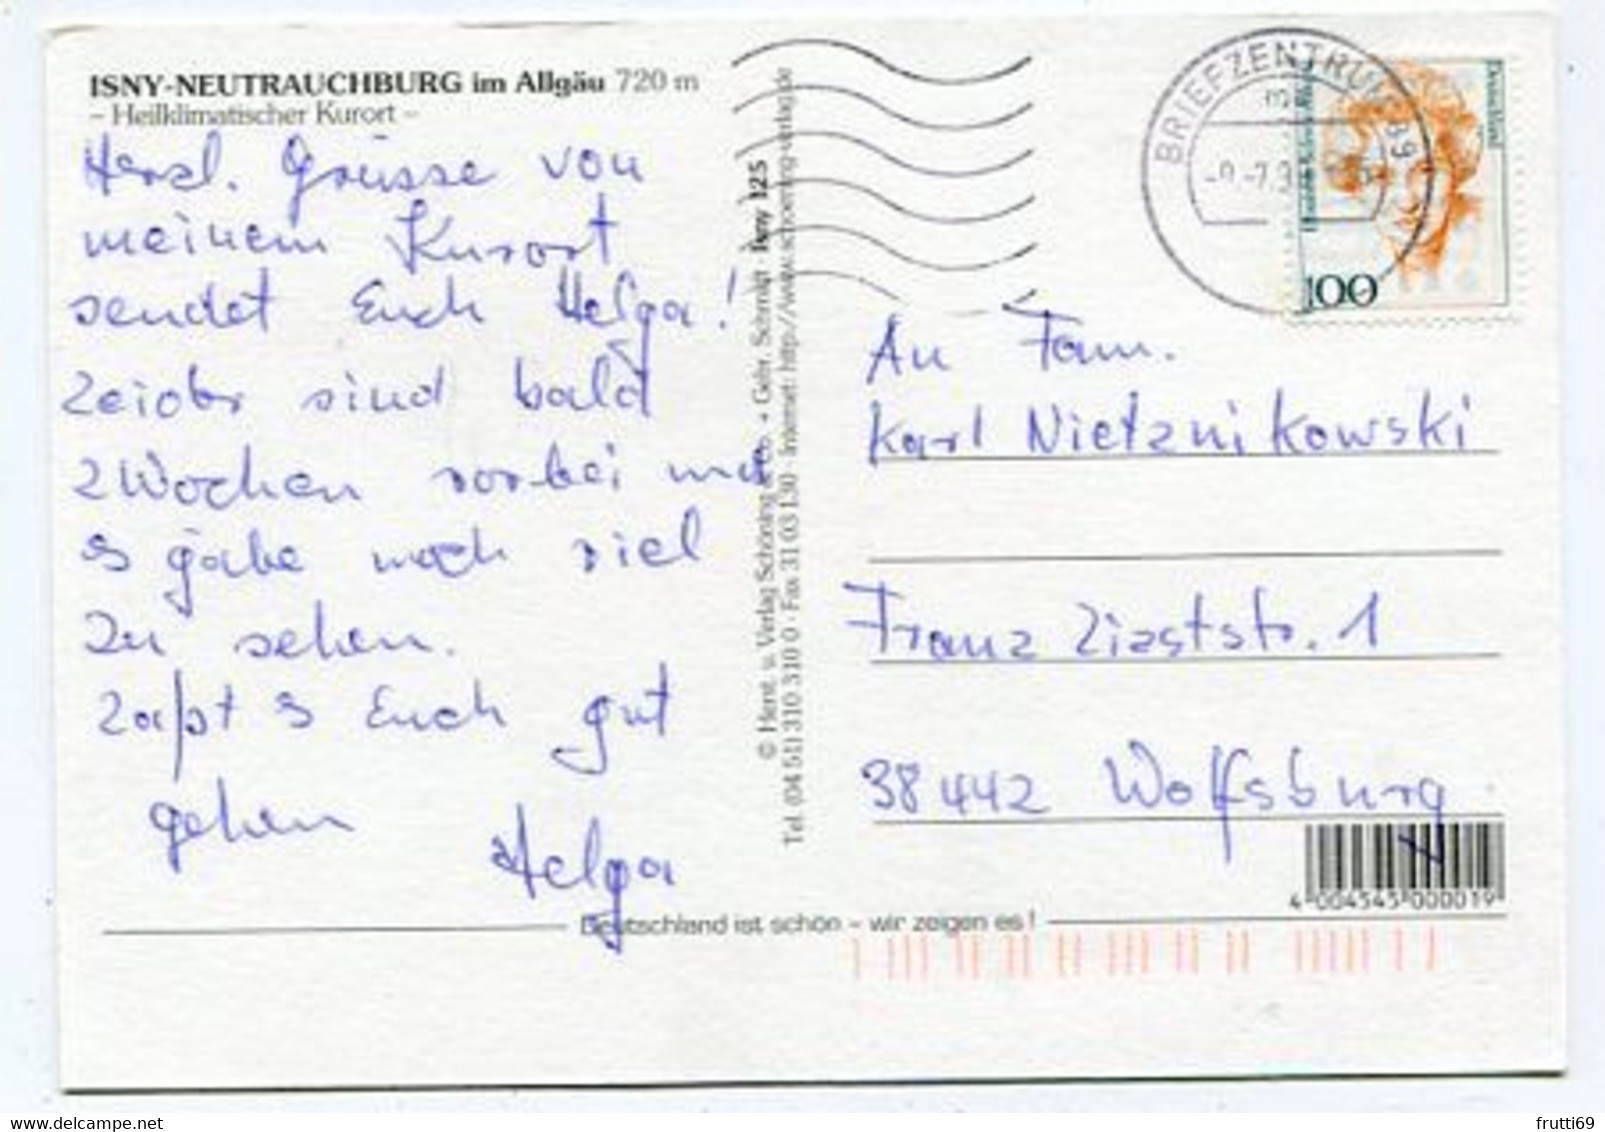 ISNY-NEUTRAUCHBURG im Allgäu 720 m
– Heilklimatischer Kurort –
Herzl. Grüsse von
meinem Kurort
sendet Euch Helga!
Leider sind bald
2 Wochen vorbei und
es gäbe noch viel
zu sehen.
Laßt es Euch gut
gehen
Helga
© Herst. u. Verlag Schöning & Co. + Gebr. Schmidt Isny 125
Tel. (04 51) 310 310 0 · Fax 31 03 130 · Internet: http://www.schoening-verlag.de
BRIEFZENTRUM
Deutschland
100
An Fam.
Karl Nietznikowski
Franz Ziaststr. 1
38442 Wolfsburg
4 004545 000019
Deutschland ist schön – wir zeigen es!
frutti69